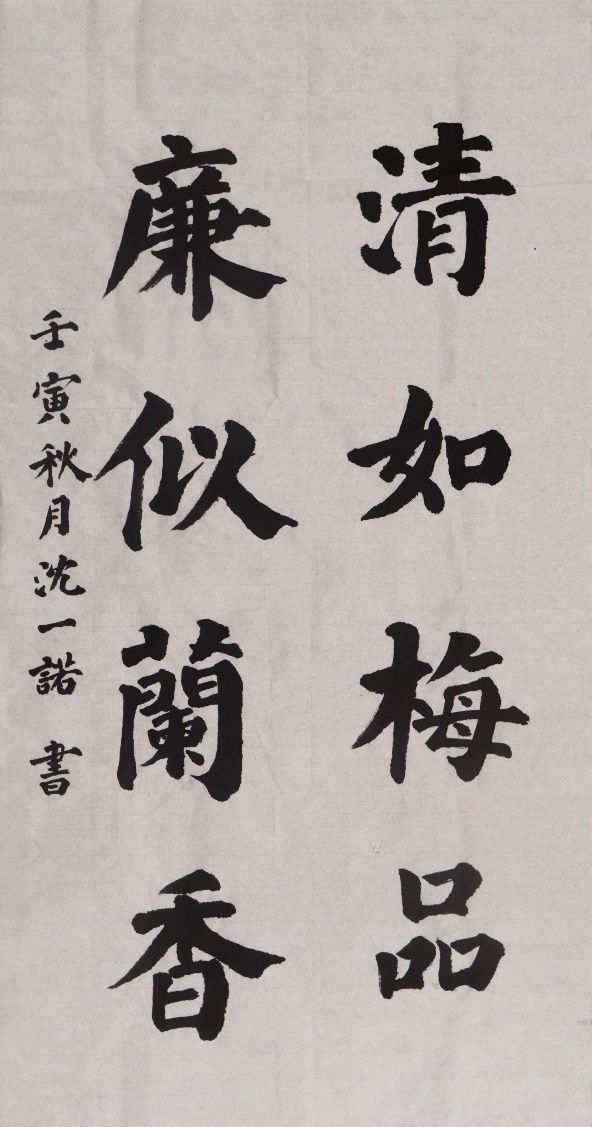 清如梅品
廉似蘭香
壬寅秋月沈一諾書